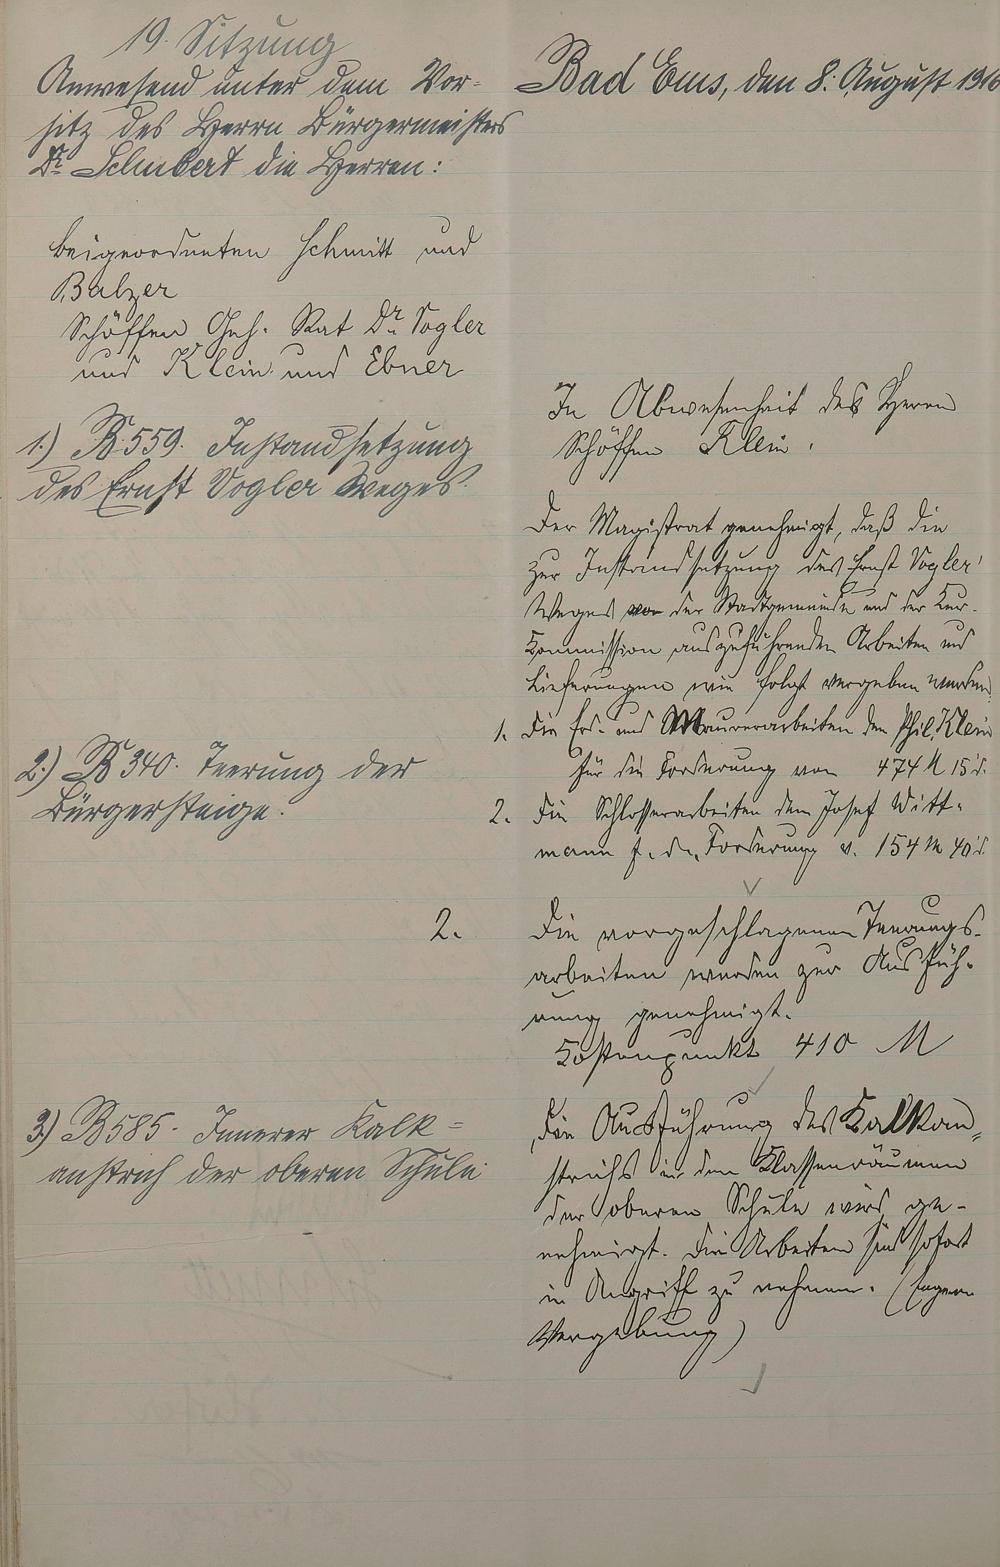 19. Sitzung
Anwesend unter dem Vor-
sitz des Herrn Bürgermeisters
Dr. Schubert die Herren:
Beigeordneten Schmitt und
Balzer
Schöffen Geh. Rat Dr. Vogler
und Klein und Ebner
1.) B. 559. Instandsetzung
des Ernst Vogler Weges.
2.) B 340. Teerung der
Bürgersteige.
3) B 585. Innerer Kalk=
anstrich der oberen Schule
Bad Ems, den 8. August 1916
In Abwesenheit des Herrn
Schöffen Klein.
Der Magistrat genehmigt, daß die
zur Instandsetzung des Ernst Vogler
Weges von der Stadtgemeinde und der Kur-
Kommission auszuführenden Arbeiten und
Lieferungen wie folgt vergeben werden
1. Die Erd- und Maurerarbeiten dem Phil. Klein
für die Forderung von 474 M 15 d.
2. Die Schlosserarbeiten dem Josef Witt-
mann f. die Forderung v. 154 M 40 d.
2. Die vorgeschlagenen Teerungs-
arbeiten werden zur Ausfüh-
rung genehmigt.
Kostenpunkt 410 M
Die Ausführung des Kalkan-
strichs in den Klassenräumen
der oberen Schule wird ge-
nehmigt. Die Arbeiten sind sofort
in Angriff zu nehmen. (
Vergebung)